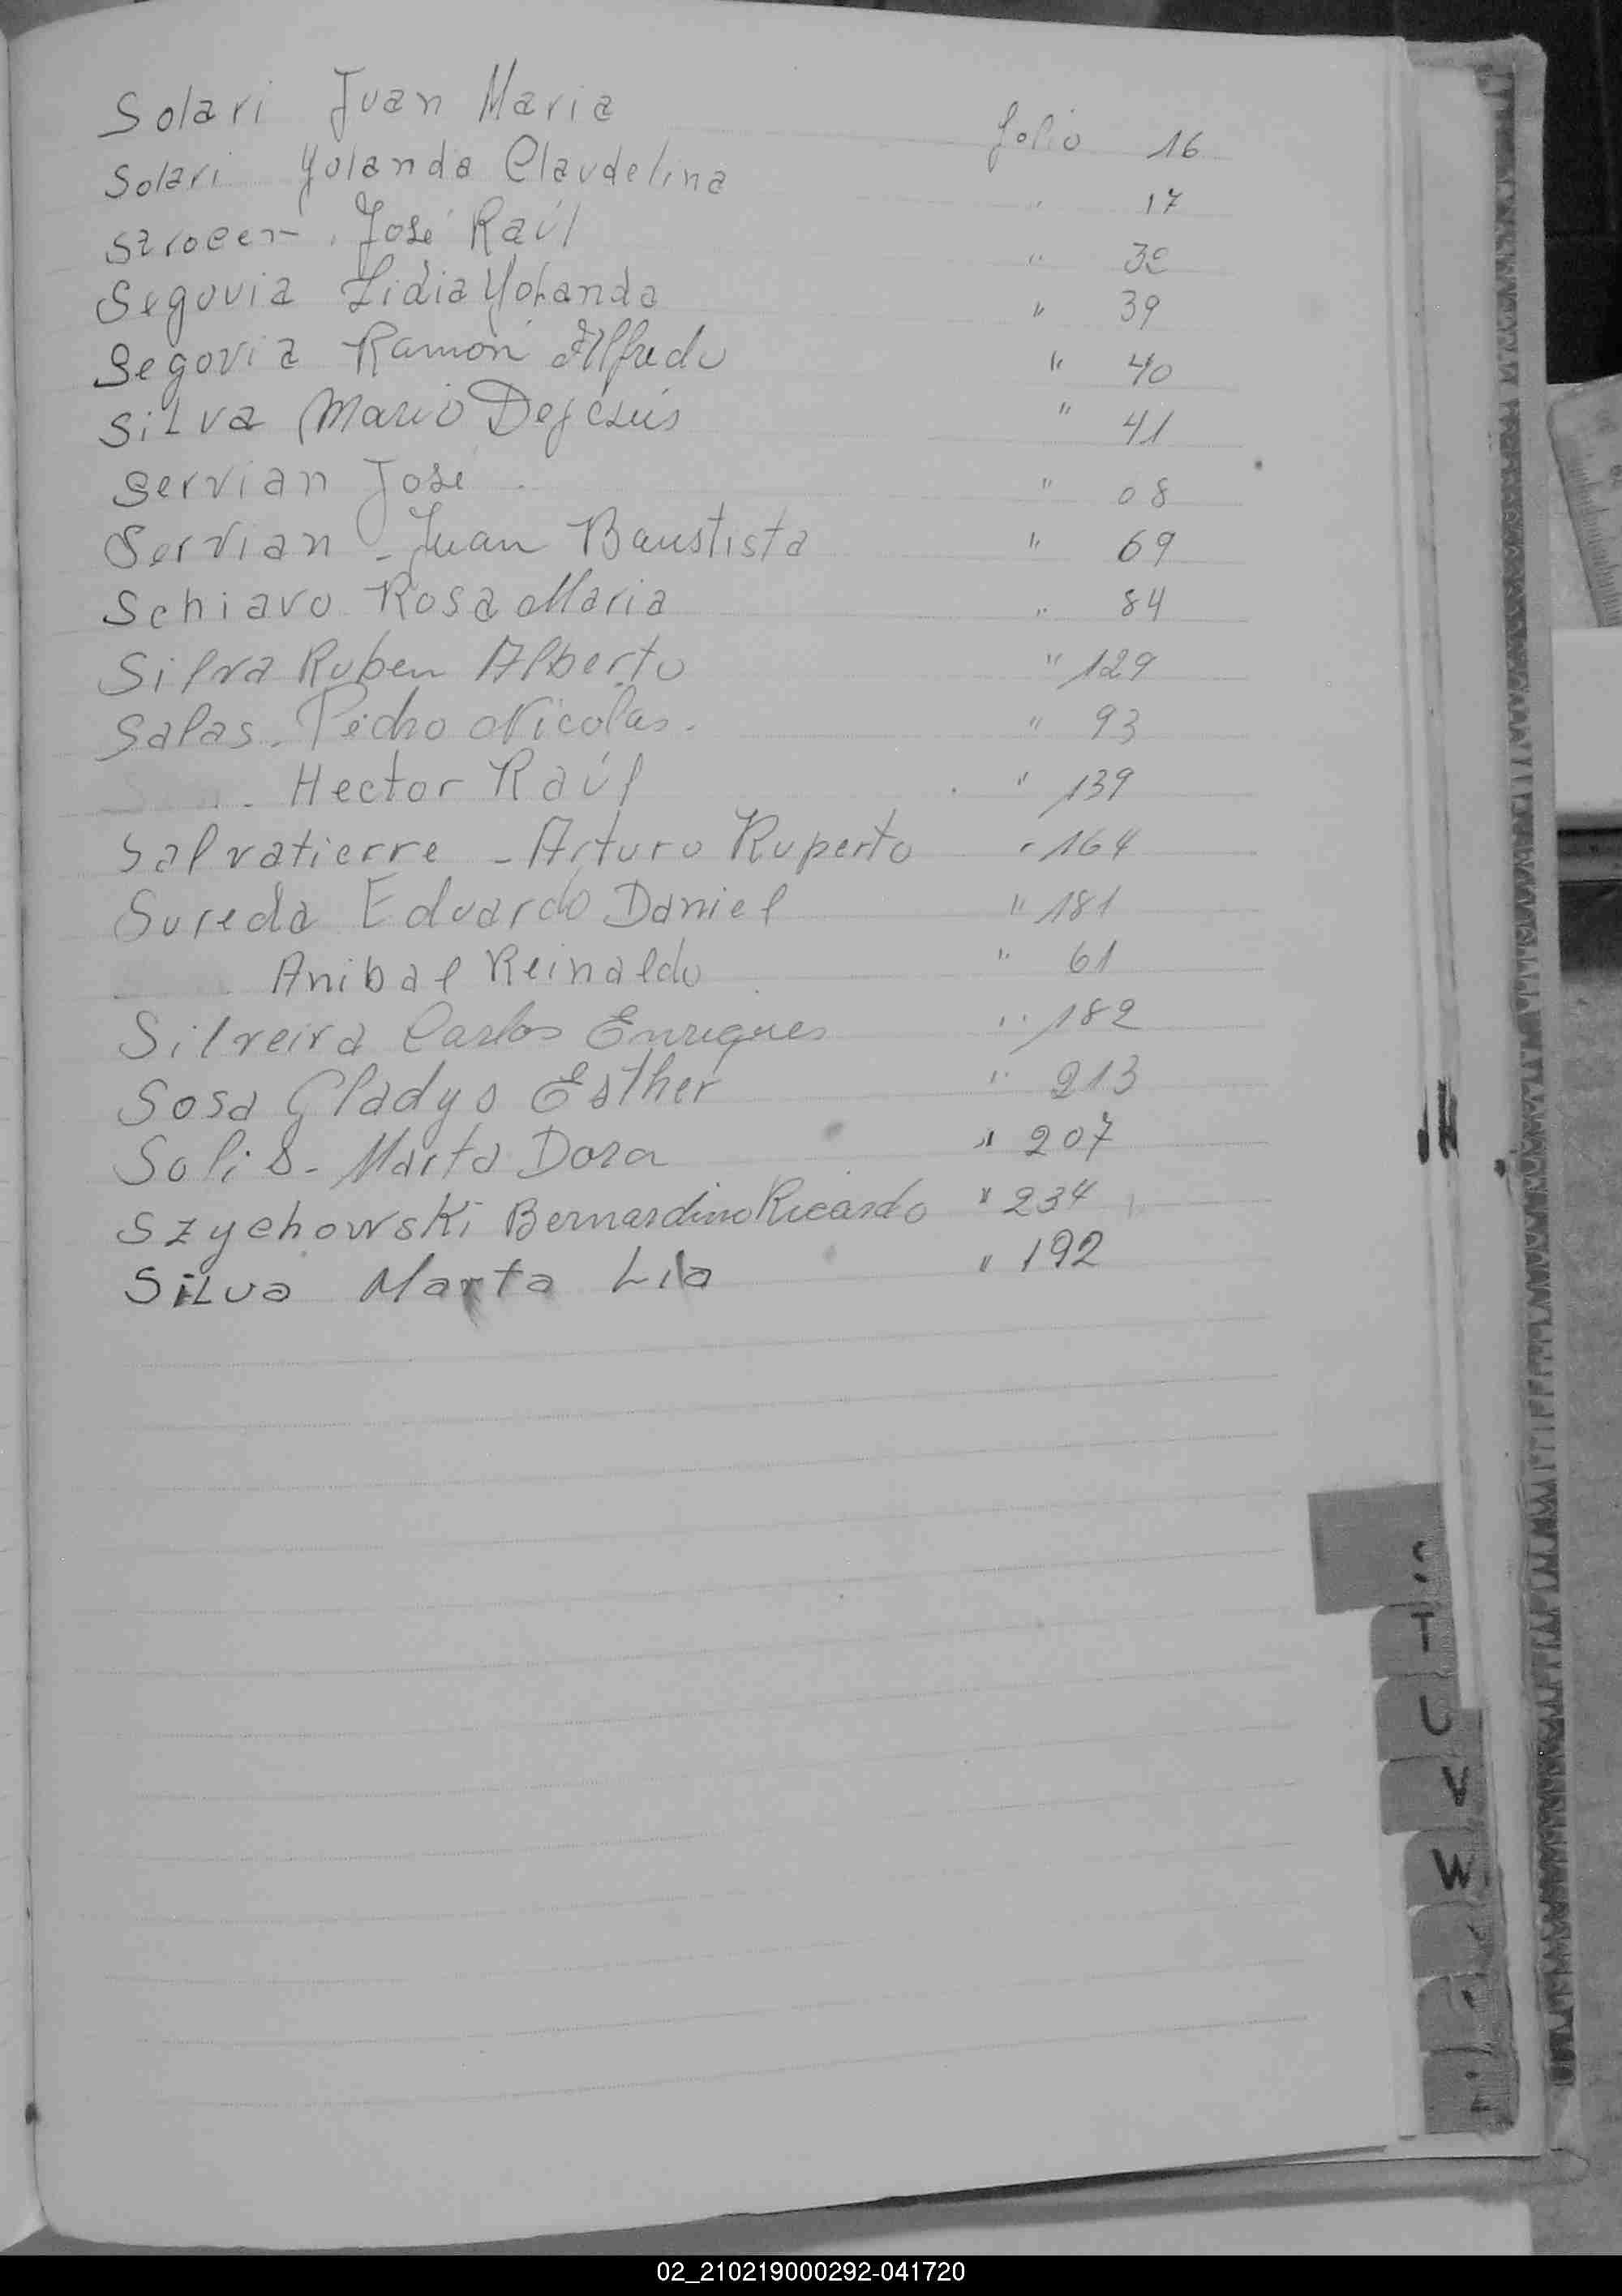 Solari Juan Maria folio 16
Solari Yolanda Claudelina " 17
José Raúl "
Segovia Lidia Yolanda " 39
Segovia Ramón Alfredo " 40
Silva Mario Dejesús " 41
Servian José " 08
Servian - Juan Baustista " 69
Schiavo Rosa Maria " 84
Silva Ruben Alberto " 129
Salas - Pedro Nicolas. " 93
- Hector Raúl " 139
Salvatierre - Arturo Ruperto " 164
Sureda Eduardo Daniel " 181
Anibal Reinaldo " 61
Silveira Carlos Enriques " 182
Sosa Gladys Esther " 213
Solis - Marta Dora " 207
Szychowski Bernardino Ricardo " 234
Silva Marta Lila " 192
S
T
U
V
W
02_210219000292-041720